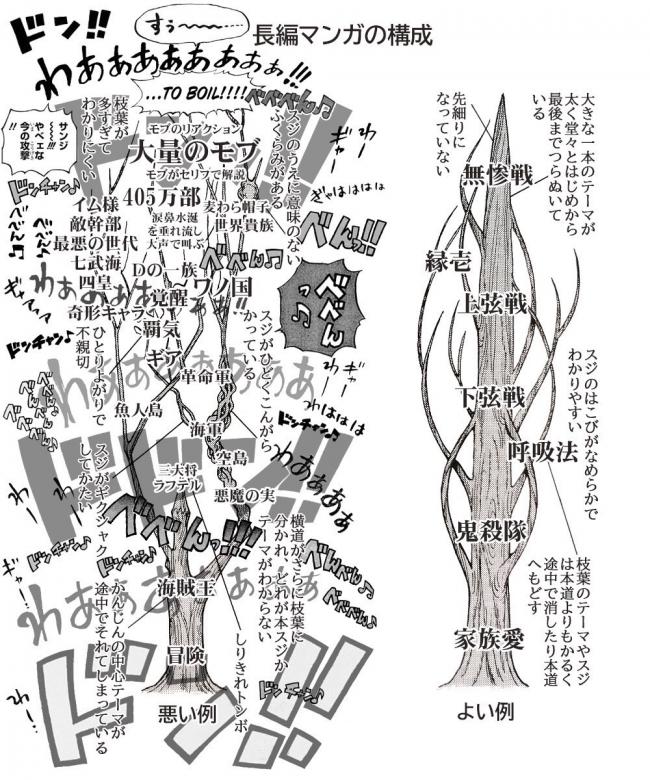 長編マンガの構成
ドン!!
すぅ〜〜〜〜…
わあああああああぁぁ!!!
...TO BOIL!!!!
べべべん♪
サンジ
〜〜〜!!!
やべェな
今の攻撃
枝葉が
多すぎて
わかりにくい
モブのリアクション
大量のモブ
モブがセリフで解説
405万部
涙鼻水涎
を垂れ流し
大声で叫ぶ
スジのうえに意味のない
ふくらみがある
わー
ギャー
ぎゃはははは
ドンチャン♪
イム様
敵幹部
最悪の世代
七武海
四皇
奇形キャラ
麦わら帽子
世界貴族
べんっ!!
べべん♪
Dの一族
覚醒
ワノ国
覇気
ギア
革命軍
べべん
ッ♪
ギャアアア
わあああああ
ドンチャン♪
ひとりよがりで
不親切
スジがひどくこんがら
かっている
わあああああああ
わー
ギャー
わははは
ドンチャン♪
魚人島
海軍
空島
三大将
ラフテル
悪魔の実
わあぁぁぁ
べべべん♪
ドドン!!
スジがギクシャク
してかたい
べべんっ!!!
横道がさらに枝葉に
分かれ、どれが本スジか
テーマがわからない
べんべん♪
べべべん♪
わー
ギャー
ドンチャン♪
海賊王
冒険
かんじんの中心テーマが
途中でそれてしまっている
しりきれトンボ
ドンチャン♪
ドン!!
悪い例
大きな一本のテーマが
太く堂々とはじめから
最後までつらぬいて
いる
先細りに
なっていない
無惨戦
縁壱
上弦戦
スジのはこびがなめらかで
わかりやすい
下弦戦
呼吸法
鬼殺隊
枝葉のテーマやスジ
は本道よりもかるく
途中で消したり本道
へもどす
家族愛
よい例